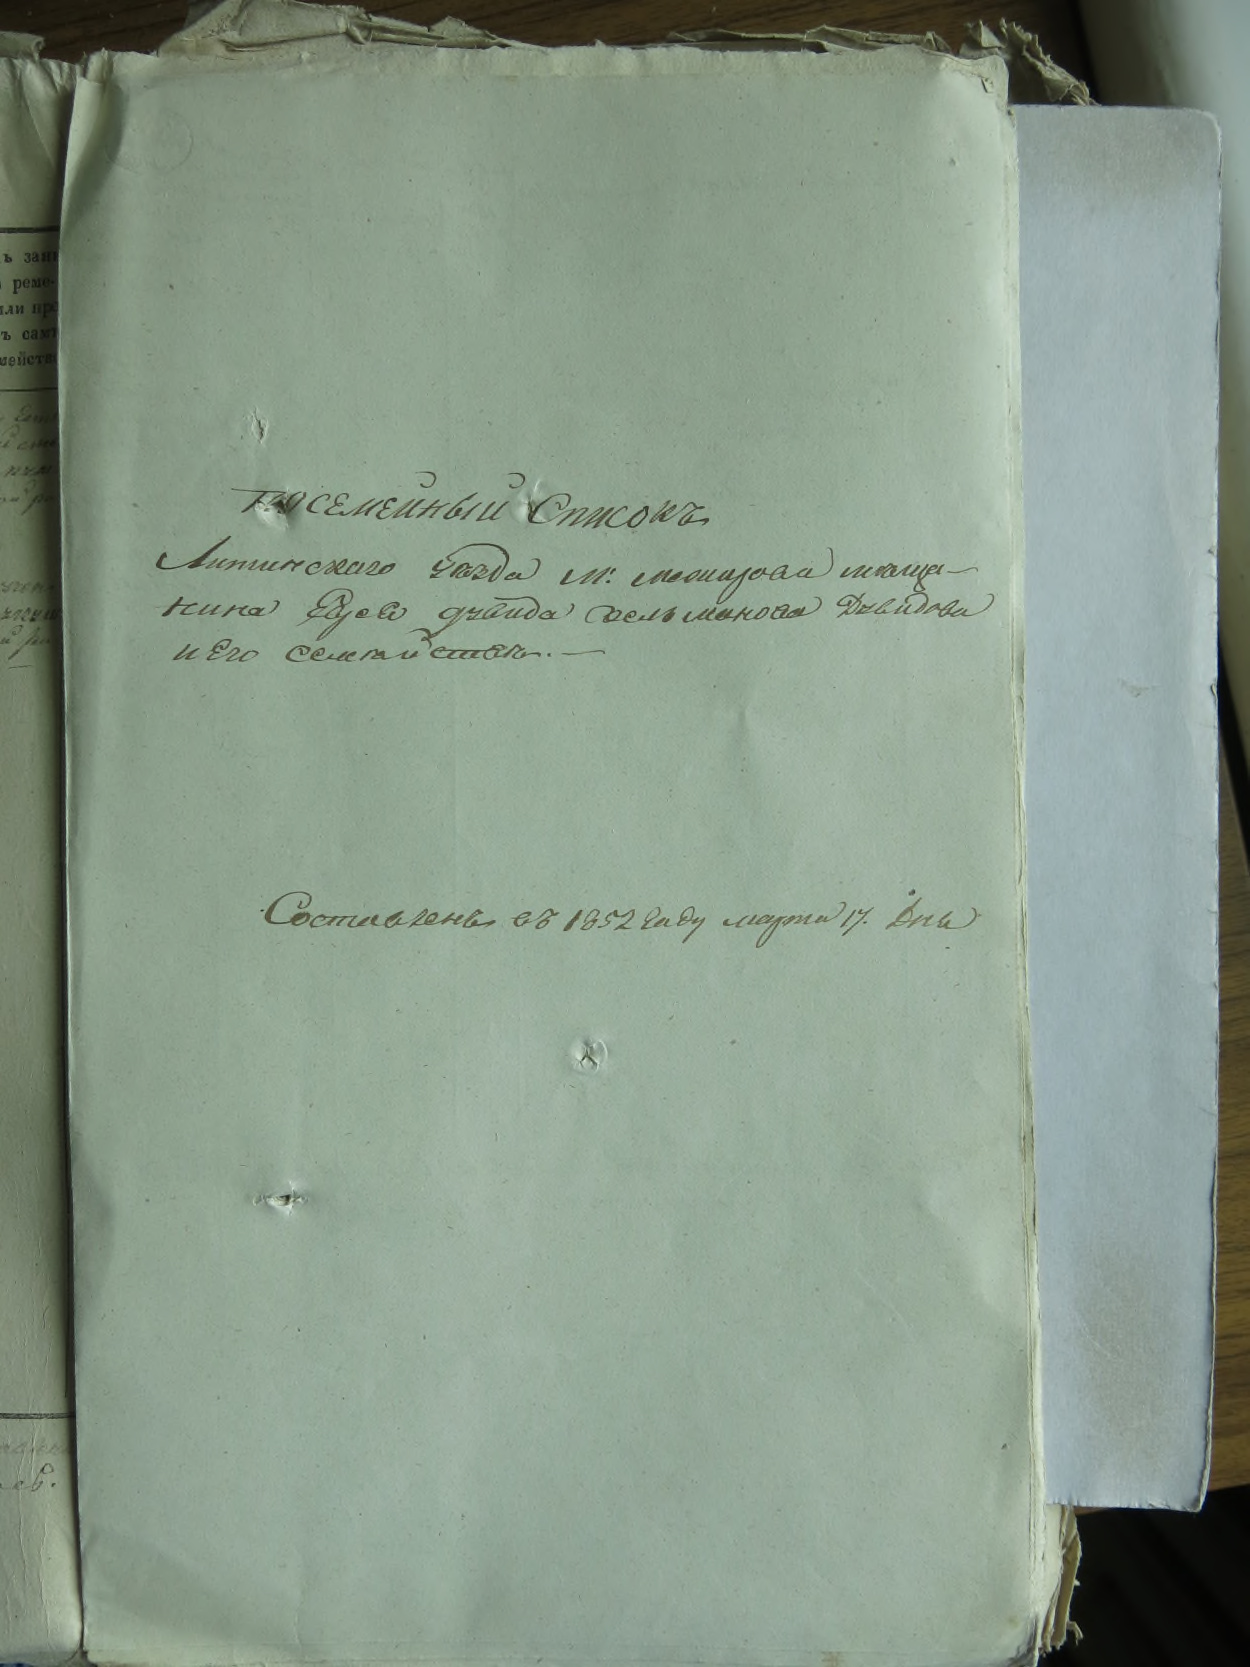 ъ зан
реме-
или пр
ъ сам
мейств
Посемейный Списокъ
Литинскаго уѣзда М: Межирова мѣща-
нина Дувида Зельманова Дувидова
и Его Семѣйства. —
Составленъ въ 1852 Году марта 17. Дня